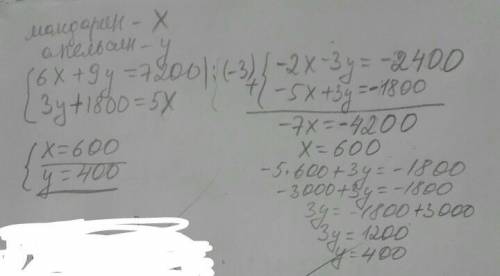 мандарин - x
апельсин - y
{ 6x + 9y = 7200 | : (-3)
3y + 1800 = 5x
{ x = 600
y = 400
+ { -2x - 3y = -2400
-5x + 3y = -1800
-7x = -4200
x = 600
-5·600 + 3y = -1800
-3000 + 3y = -1800
3y = -1800 + 3000
3y = 1200
y = 400